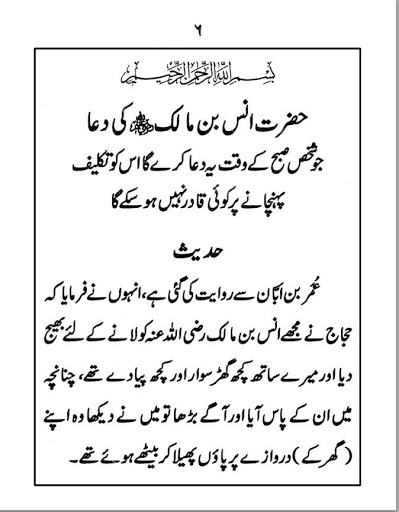 ۶
بسم اللہ الرحمن الرحیم
حضرت انس بن مالک رضی اللہ عنہ کی دعا
جو شخص صبح کے وقت یہ دعا کرے گا اس کو تکلیف
پہنچانے پر کوئی قادر نہیں ہو سکے گا
حدیث
عُمَر بن ابّان سے روایت کی گئی ہے، انہوں نے فرمایا کہ
حجاج نے مجھے انس بن مالک رضی اللہ عنہ کو لانے کے لئے بھیج
دیا اور میرے ساتھ کچھ گھڑ سوار اور کچھ پیادے تھے، چنانچہ
میں ان کے پاس آیا اور آگے بڑھا تو میں نے دیکھا وہ اپنے
(گھر کے) دروازے پر پاؤں پھیلا کر بیٹھے ہوئے تھے۔